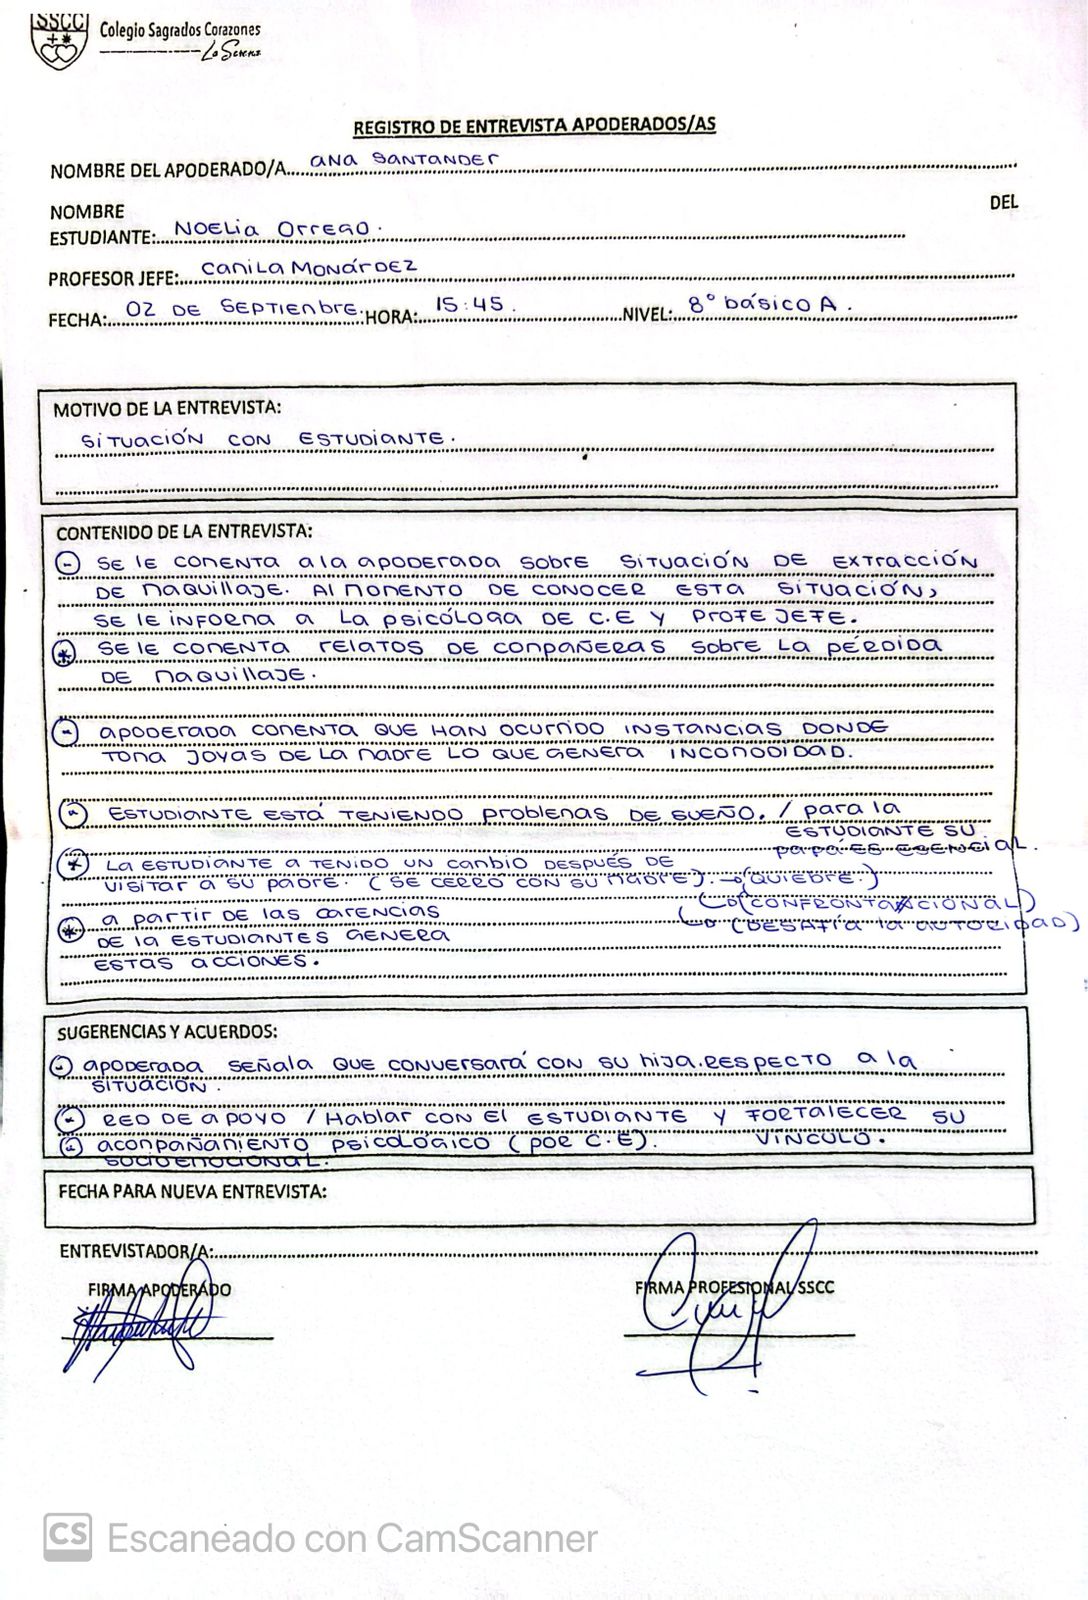 SSCC
Colegio Sagrados Corazones
La Serena
REGISTRO DE ENTREVISTA APODERADOS/AS
NOMBRE DEL APODERADO/A... ANA SANTANDER
NOMBRE DEL
ESTUDIANTE: NOELIA ORREGO.
PROFESOR JEFE: CAMILA MONÁRDEZ
FECHA: 02 DE SEPTIEMBRE. HORA: 15:45. NIVEL: 8° básico A.
MOTIVO DE LA ENTREVISTA:
SITUACIÓN CON ESTUDIANTE.
CONTENIDO DE LA ENTREVISTA:
- SE LE COMENTA A LA APODERADA SOBRE SITUACIÓN DE EXTRACCIÓN
DE MAQUILLAJE. AL MOMENTO DE CONOCER ESTA SITUACIÓN,
SE LE INFORMA A LA PSICÓLOGA DE C.E Y PROFE JEFE.
* SE LE COMENTA RELATOS DE COMPAÑERAS SOBRE LA PÉRDIDA
DE MAQUILLAJE.
- APODERADA COMENTA QUE HAN OCURRIDO INSTANCIAS DONDE
TOMA JOYAS DE LA MADRE LO QUE GENERA INCOMODIDAD.
- ESTUDIANTE ESTÁ TENIENDO PROBLEMAS DE SUEÑO. / para la
ESTUDIANTE SU
PAPÁ ES ESENCIAL.
* LA ESTUDIANTE A TENIDO UN CAMBIO DESPUÉS DE
VISITAR A SU PADRE. (SE CERRÓ CON SU MADRE). → (QUIEBRE.)
↳ (CONFRONTACIONAL)
↳ (DESAFÍA la AUTORIDAD)
* A PARTIR DE LAS CARENCIAS
DE LA ESTUDIANTES GENERA
ESTAS ACCIONES.
SUGERENCIAS Y ACUERDOS:
- APODERADA SEÑALA QUE CONVERSARÁ CON SU HIJA. RESPECTO A LA
SITUACIÓN.
- RED DE APOYO / HABLAR CON EL ESTUDIANTE Y FORTALECER SU
VÍNCULO.
- ACOMPAÑAMIENTO PSICOLÓGICO (POR C.E).
SOCIOEMOCIONAL.
FECHA PARA NUEVA ENTREVISTA:
ENTREVISTADOR/A:
FIRMA APODERADO FIRMA PROFESIONAL SSCC
CS Escaneado con CamScanner